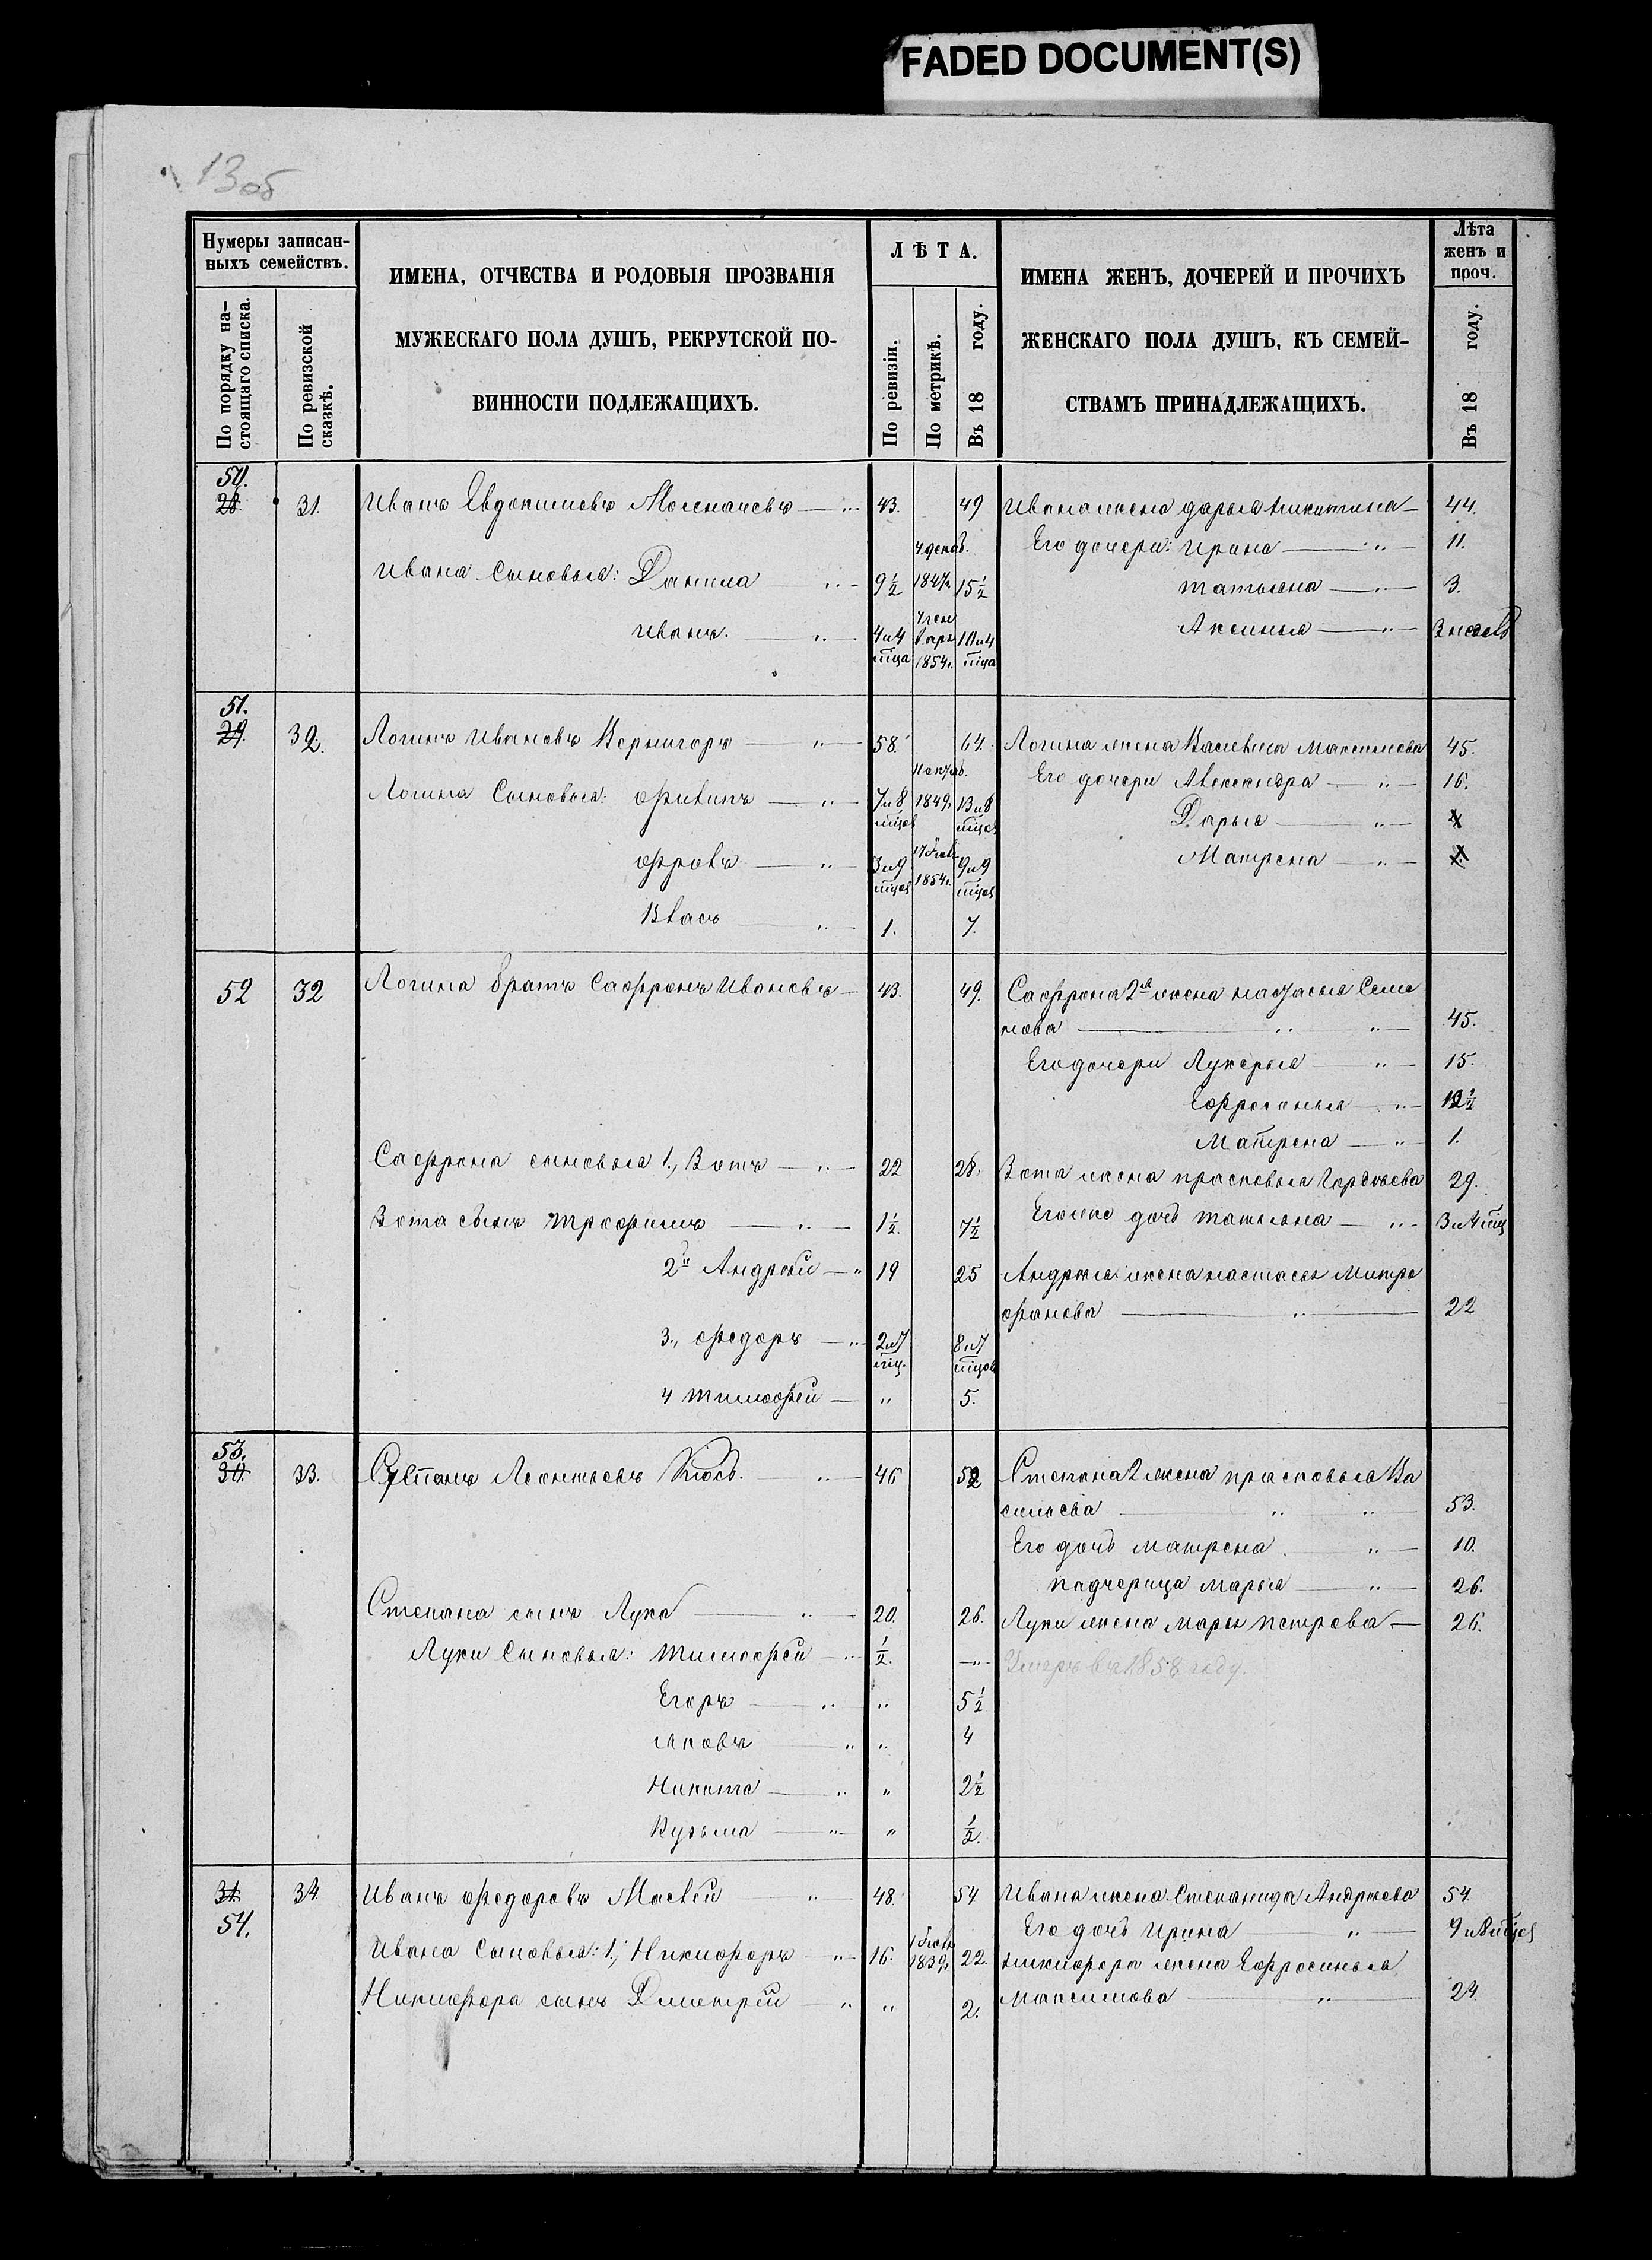 FADED DOCUMENT(S)
13 об
Нумеры записан-
ныхъ семействъ.
По порядку на-
стоящаго списка.
По ревизской
сказкѣ.
ИМЕНА, ОТЧЕСТВА И РОДОВЫЯ ПРОЗВАНІЯ
МУЖЕСКАГО ПОЛА ДУШЪ, РЕКРУТСКОЙ ПО-
ВИННОСТИ ПОДЛЕЖАЩИХЪ.
ЛѢТА.
По ревизіи.
По метрикѣ.
Въ 18 году.
ИМЕНА ЖЕНЪ, ДОЧЕРЕЙ И ПРОЧИХЪ
ЖЕНСКАГО ПОЛА ДУШЪ, КЪ СЕМЕЙ-
СТВАМЪ ПРИНАДЛЕЖАЩИХЪ.
Лѣта
женъ и
проч.
Въ 18 году.
50.
28. 31. Иванъ Евдокимовъ 43. 49 Ивана жена дарья Никитина 44.
Его дочери: Ирина 11.
Ивана Сыновья: Данила 9½ 4 декаб. 1847г. 15½ татьяна 3.
Иванъ 4 и 4 мца 1854г. 10 и 4 мца Аксинья
51.
29. 32. Логинъ Ивановъ Вернигоръ 58. 64. Логина жена Василиса Максимова 45.
Его дочери Александра 16.
Логина Сыновья: Филипъ 7 и 8 мцов 1849г. 13 и 8 мцов Дарья
Фролъ 3 и 9 мцов 1854г. 9 и 9 мцов Матрена
Власъ 1. 7.
52 32 Логина братъ Сафронъ Ивановъ 43. 49. Сафрона 2я жена настасья Семе
нова 45.
Его дочери Лукерья 15.
Ефросинья 12½
Матрена 1.
Сафрона сыновья 1., Зотъ 22 28. Зота жена прасковья Гордѣева 29.
Зота сынъ Трофимъ 1½. 7½ Его же дочь татьяна 3 и 4 мц
2й Андрей 19 25 Андрея жена настасья Митро
фанова 22
3., Федоръ 2 и 7 мц. 8 и 7 мцов
4 Тимофей " 5.
53.
30. 33. Степанъ Леонтьевъ 46 52 Степана 2 жена прасковья Ва
сильева 53.
Его дочь матрена 10.
падчерица марья 26.
Степана сынъ Лука 20. 26. Луки жена марья петрова 26.
Луки Сыновья: Тимофей ½. " Умеръ въ 1858 году.
Егоръ " 5½
Яковъ " 4
Никита " 2½
Кузьма " ½.
31. 34 Иванъ Федоровъ 48. 54 Ивана жена Степанида Андреева 54.
54. Его дочь Ирина
Ивана Сыновья: 1., Никифоръ 16. 1839г. 22. Никифора жена Ефросинья
Никифора сынъ Дмитрій " 2. Максимова 24.